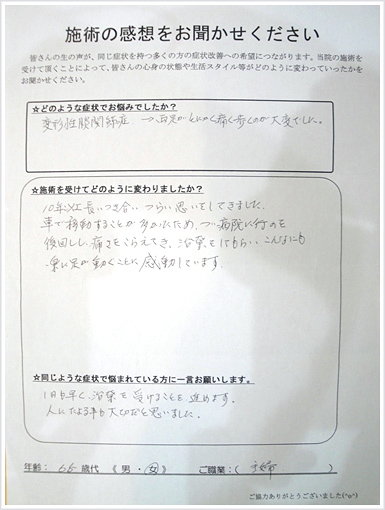 施術の感想をお聞かせください
皆さんの生の声が、同じ症状を持つ多くの方の症状改善への希望につながります。当院の施術を
受けて頂くことによって、皆さんの心身の状態や生活スタイル等がどのように変わっていったかを
お聞かせください。
☆どのような症状でお悩みでしたか？
変形性股関節症 足がとにかく痛く歩くのが大変でした。
☆施術を受けてどのように変わりましたか？
10年以上長いつき合い つらい思いをしてきました。
車で移動することが多かったため、つい病院に行くのを
後回しし、痛さをこらえてき、治療をしてもらい、こんなにも
楽に足が動くことに感動しています。
☆同じような症状で悩まれている方に一言お願いします。
1日も早く、治療を受けることを進めます。
人にたよる事も大切だと思いました。
年齢： 歳代 《 男 ・ 女 》 ご職業：( 主婦 )
ご協力ありがとうございました(^o^)